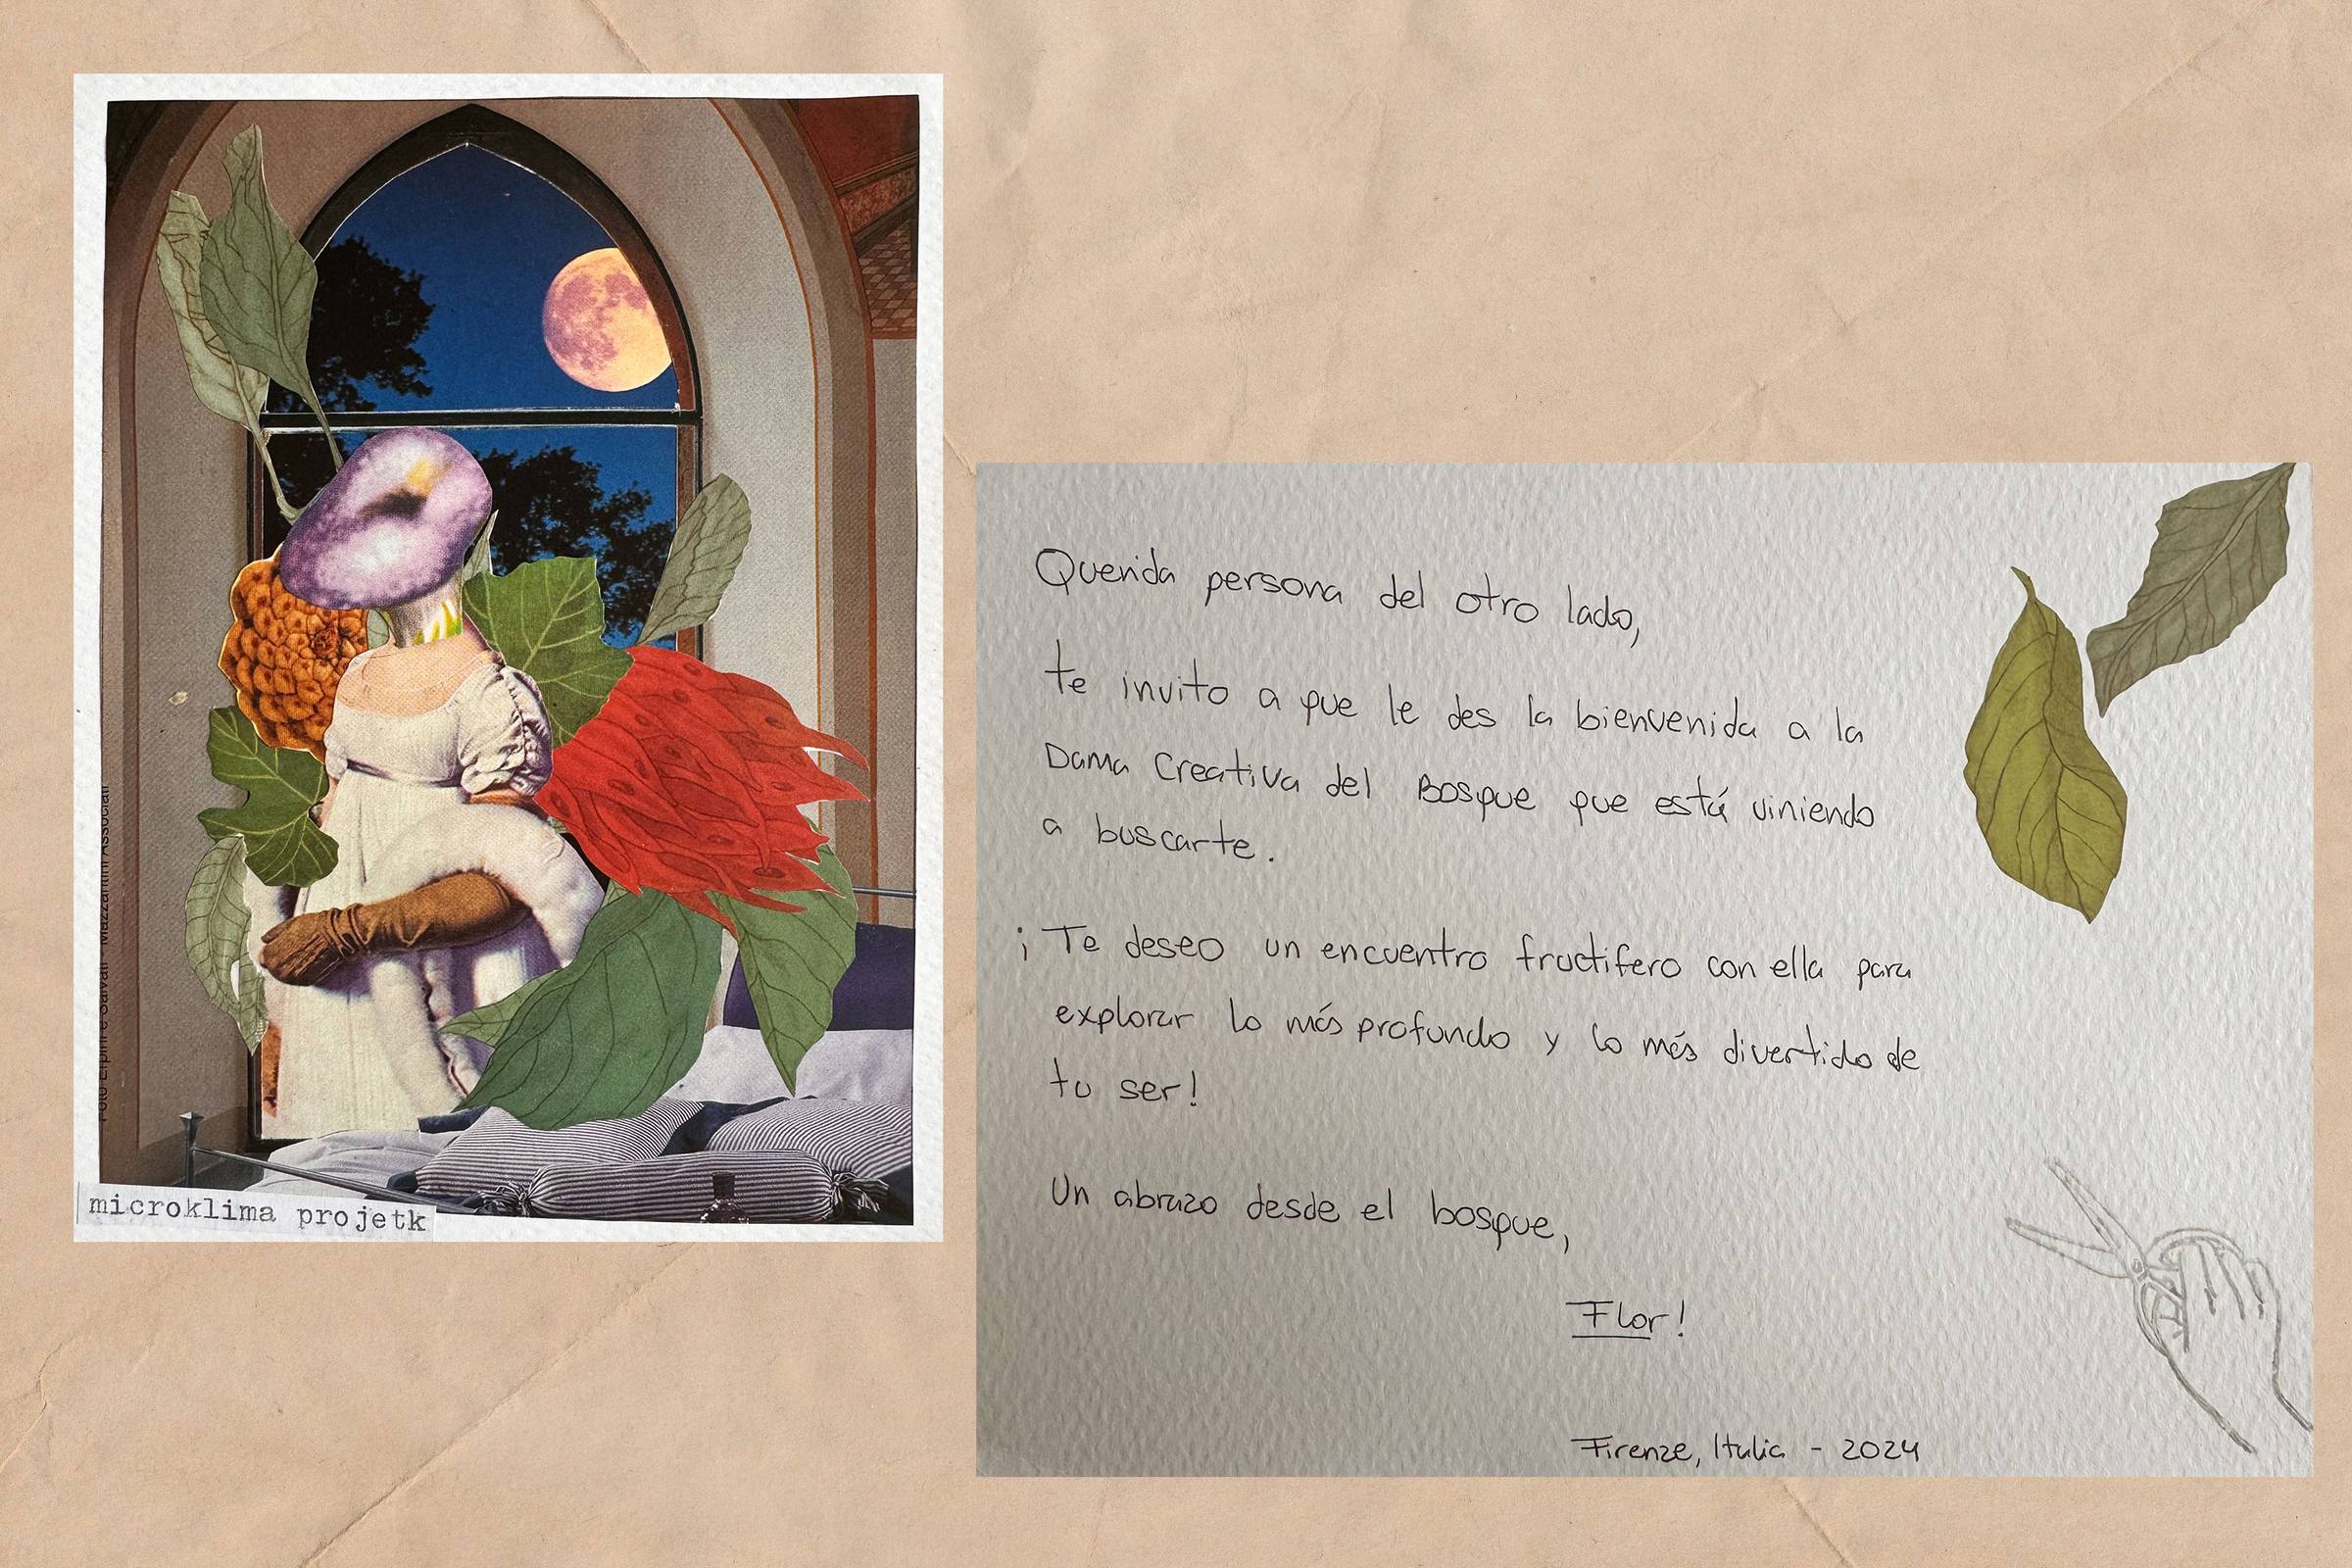 Foto Elpini e Salvati Mazzantini Associati
microklima projetk
Querida persona del otro lado,
te invito a que le des la bienvenida a la
Dama Creativa del Bosque que está viniendo
a buscarte.
¡Te deseo un encuentro fructifero con ella para
explorar lo más profundo y lo más divertido de
tu ser!
Un abrazo desde el bosque,
Flor!
Firenze, Italia - 2024